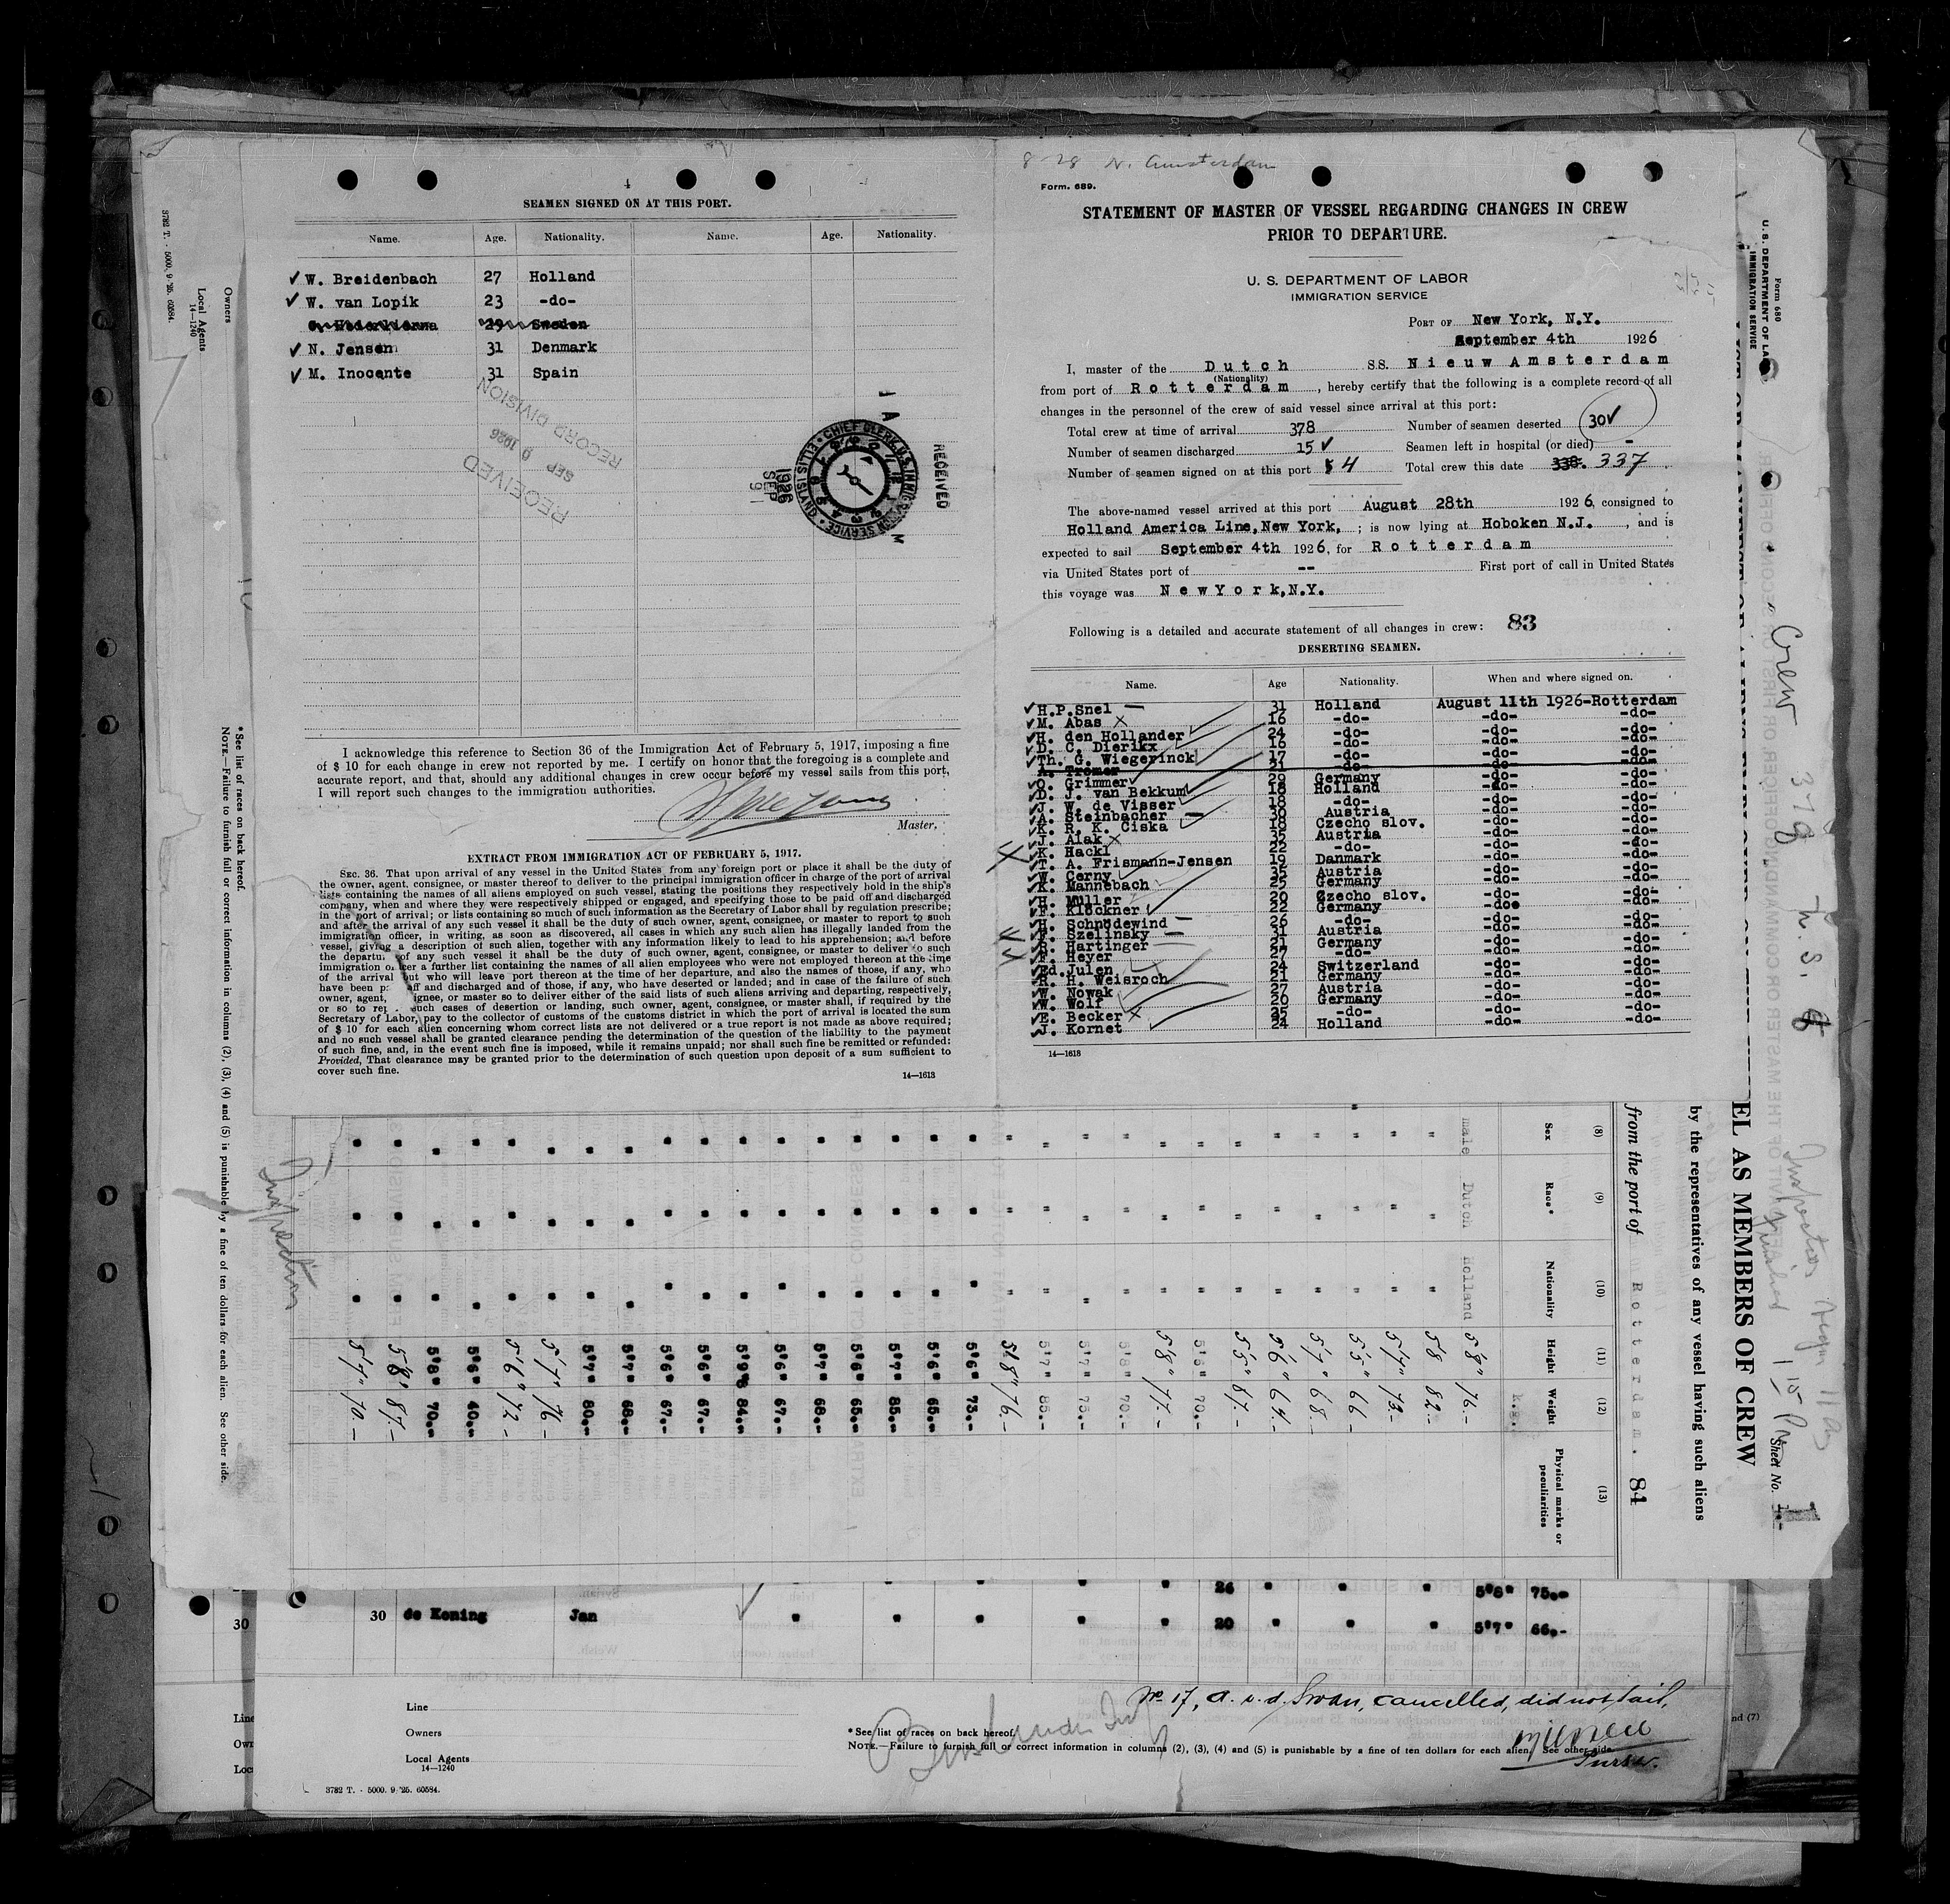 SEAMEN SIGNED ON AT THIS PORT.
Name. Age. Nationality. Name. Age. Nationality.
✓ W. Breidenbach 27 Holland
✓ W. van Lopik 23 -do-
29 Sweden
✓ N. Jensen 31 Denmark
✓ M. Inocente 31 Spain
RECEIVED
SEP 9 1926
RECORD DIVISION
RECEIVED
CHIEF CLERK, U.S. IMMIGRATION SERVICE ELLIS ISLAND
SEP 9 1926
I acknowledge this reference to Section 36 of the Immigration Act of February 5, 1917, imposing a fine
of $ 10 for each change in crew not reported by me. I certify on honor that the foregoing is a complete and
accurate report, and that, should any additional changes in crew occur before my vessel sails from this port,
I will report such changes to the immigration authorities.
Master.
EXTRACT FROM IMMIGRATION ACT OF FEBRUARY 5, 1917.
SEC. 36. That upon arrival of any vessel in the United States from any foreign port or place it shall be the duty of
the owner, agent, consignee, or master thereof to deliver to the principal immigration officer in charge of the port of arrival
lists containing the names of all aliens employed on such vessel, stating the positions they respectively hold in the ship's
company, when and where they were respectively shipped or engaged, and specifying those to be paid off and discharged
in the port of arrival; or lists containing so much of such information as the Secretary of Labor shall by regulation prescribe;
and after the arrival of any such vessel it shall be the duty of such owner, agent, consignee, or master to report to such
immigration officer, in writing, as soon as discovered, all cases in which any such alien has illegally landed from the
vessel, giving a description of such alien, together with any information likely to lead to his apprehension; and before
the departu of any such vessel it shall be the duty of such owner, agent, consignee, or master to deliver to such
immigration o cer a further list containing the names of all alien employees who were not employed thereon at the time
of the arrival but who will leave port thereon at the time of her departure, and also the names of those, if any, who
have been p aff and discharged and of those, if any, who have deserted or landed; and in case of the failure of such
owner, agent, ignee, or master so to deliver either of the said lists of such aliens arriving and departing, respectively,
or so to rep such cases of desertion or landing, such owner, agent, consignee, or master shall, if required by the
Secretary of Labor, pay to the collector of customs of the customs district in which the port of arrival is located the sum
of $ 10 for each alien concerning whom correct lists are not delivered or a true report is not made as above required;
and no such vessel shall be granted clearance pending the determination of the question of the liability to the payment
of such fine, and, in the event such fine is imposed, while it remains unpaid; nor shall such fine be remitted or refunded:
Provided, That clearance may be granted prior to the determination of such question upon deposit of a sum sufficient to
cover such fine.
14—1613
8 28 N. Amsterdam
Form. 689.
STATEMENT OF MASTER OF VESSEL REGARDING CHANGES IN CREW
PRIOR TO DEPARTURE.
U. S. DEPARTMENT OF LABOR
IMMIGRATION SERVICE
PORT OF New York, N.Y.
September 4th 1926
I, master of the Dutch SS. Nieuw Amsterdam
(Nationality)
from port of Rotterdam, hereby certify that the following is a complete record of all
changes in the personnel of the crew of said vessel since arrival at this port:
Total crew at time of arrival 378 Number of seamen deserted 30✓
Number of seamen discharged 15 ✓ Seamen left in hospital (or died) -
Number of seamen signed on at this port 4 Total crew this date 338. 337
The above-named vessel arrived at this port August 28th 1926, consigned to
Holland America Line, New York, ; is now lying at Hoboken N.J. , and is
expected to sail September 4th 1926, for Rotterdam
via United States port of -- First port of call in United States
this voyage was NewYork,N.Y.
Following is a detailed and accurate statement of all changes in crew: 83
DESERTING SEAMEN.
Name. Age Nationality. When and where signed on.
✓ H.P.Snel 31 Holland August 11th 1926-Rotterdam
✓ M. Abas X 16 -do- -do- -do-
✓ H. den Hollander 24 -do- -do- -do-
✓ D. C. Dierikx 16 -do- -do- -do-
✓ Th. G. Wiegerinck 17 -do- -do- -do-
A. Tromer 21 -do- -do- -do-
✓ O. Grimmer 29 Germany -do- -do-
✓ D. J. van Bekkum 18 Holland -do- -do-
✓ J. W. de Visser 18 -do- -do- -do-
✓ A. Steinbacher 36 Austria -do- -do-
✓ K. R. K. Ciska 18 Czecho slov. -do- -do-
✓ J. Alak X 35 Austria -do- -do-
✓ K. Hackl 22 -do- -do- -do-
✓ T. A. Frismann-Jensen 19 Danmark -do- -do-
✓ W. Cerny 35 Austria -do- -do-
✓ K. Mannebach 25 Germany -do- -do-
✓ H. Müller 20 Czecho slov. -do- -do-
✓ F. Klöckner 22 Germany -do- -do-
✓ H. Schnödewind 26 -do- -do- -do-
✓ F. Szelinsky 31 Austria -do- -do-
✓ R. Hartinger 21 Germany -do- -do-
✓ F. Heyer 27 -do- -do- -do-
✓ Ed.Julen 24 Switzerland -do- -do-
✓ R. H. Weisroch 21 Germany -do- -do-
✓ W. Nowak 27 Austria -do- -do-
✓ W. Wolf 20 Germany -do- -do-
✓ E. Becker X 25 -do- -do- -do-
✓ J. Kornet 24 Holland -do- -do-
14—1613
Form 680
U. S. DEPARTMENT OF LAB
IMMIGRATION SERVICE
Crew 378
EL AS MEMBERS OF CREW
Sheet No. 1
by the representatives of any vessel having such aliens
from the port of Rotterdam. 84
(8) (9) (10) (11) (12) (13)
Sex Race* Nationality Height Weight Physical marks or peculiarities
k.g.
male Dutch Holland 5'8" 76.-
" " " 5'8 82.-
" " " 5'7" 73.-
" " " 5'5" 66-
" " " 5'7" 68.
" " " 5'6" 64.-
" " " 5'5" 87.-
" " " 5'5" 70.-
" " " 5'8" 77.-
" " " 5'8" 70.-
" " " 5'7" 75.-
" " " 5'7" 85.-
" " " 5'8" 76.-
" " " 5'6" 73.-
" " " 5'6" 65.-
" " " 5'7" 85.-
" " " 5'6" 65.-
" " " 5'7" 68.-
" " " 5'6" 67.-
" " " 5'9" 84.-
" " " 5'6" 67.-
" " " 5'6" 67.-
" " " 5'7" 68.-
" " " 5'7" 80.-
" " " 5'7" 76-
" " " 5'6" 72-
" " " 5'6" 40.-
" " " 5'8" 70.-
" " " 5'8" 87.-
" " " 5'7" 70.-
Inspection
3782 T. - 5000. 9 '25. 60584.
Local Agents
14—1240
Owners
* See list of races on back hereof.
NOTE.—Failure to furnish full or correct information in columns (2), (3), (4) and (5) is punishable by a fine of ten dollars for each alien. See other side.
24 " " " 5'6" 75.-
30 30 de Koning Jan ✓ " " " " " 20 " " " 5'7" 66.-
No 17, a. v. d. Swan, cancelled, did not sail,
Purser.
Line
Owners
Local Agents
14—1240
* See list of races on back hereof.
NOTE.—Failure to furnish full or correct information in columns (2), (3), (4) and (5) is punishable by a fine of ten dollars for each alien. See other side.
nd (7)
3782 T. - 5000. 9 '25. 60584.